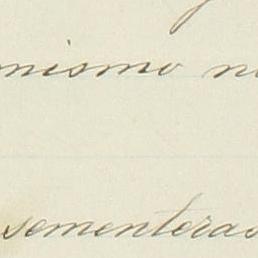 mismo
sementeras